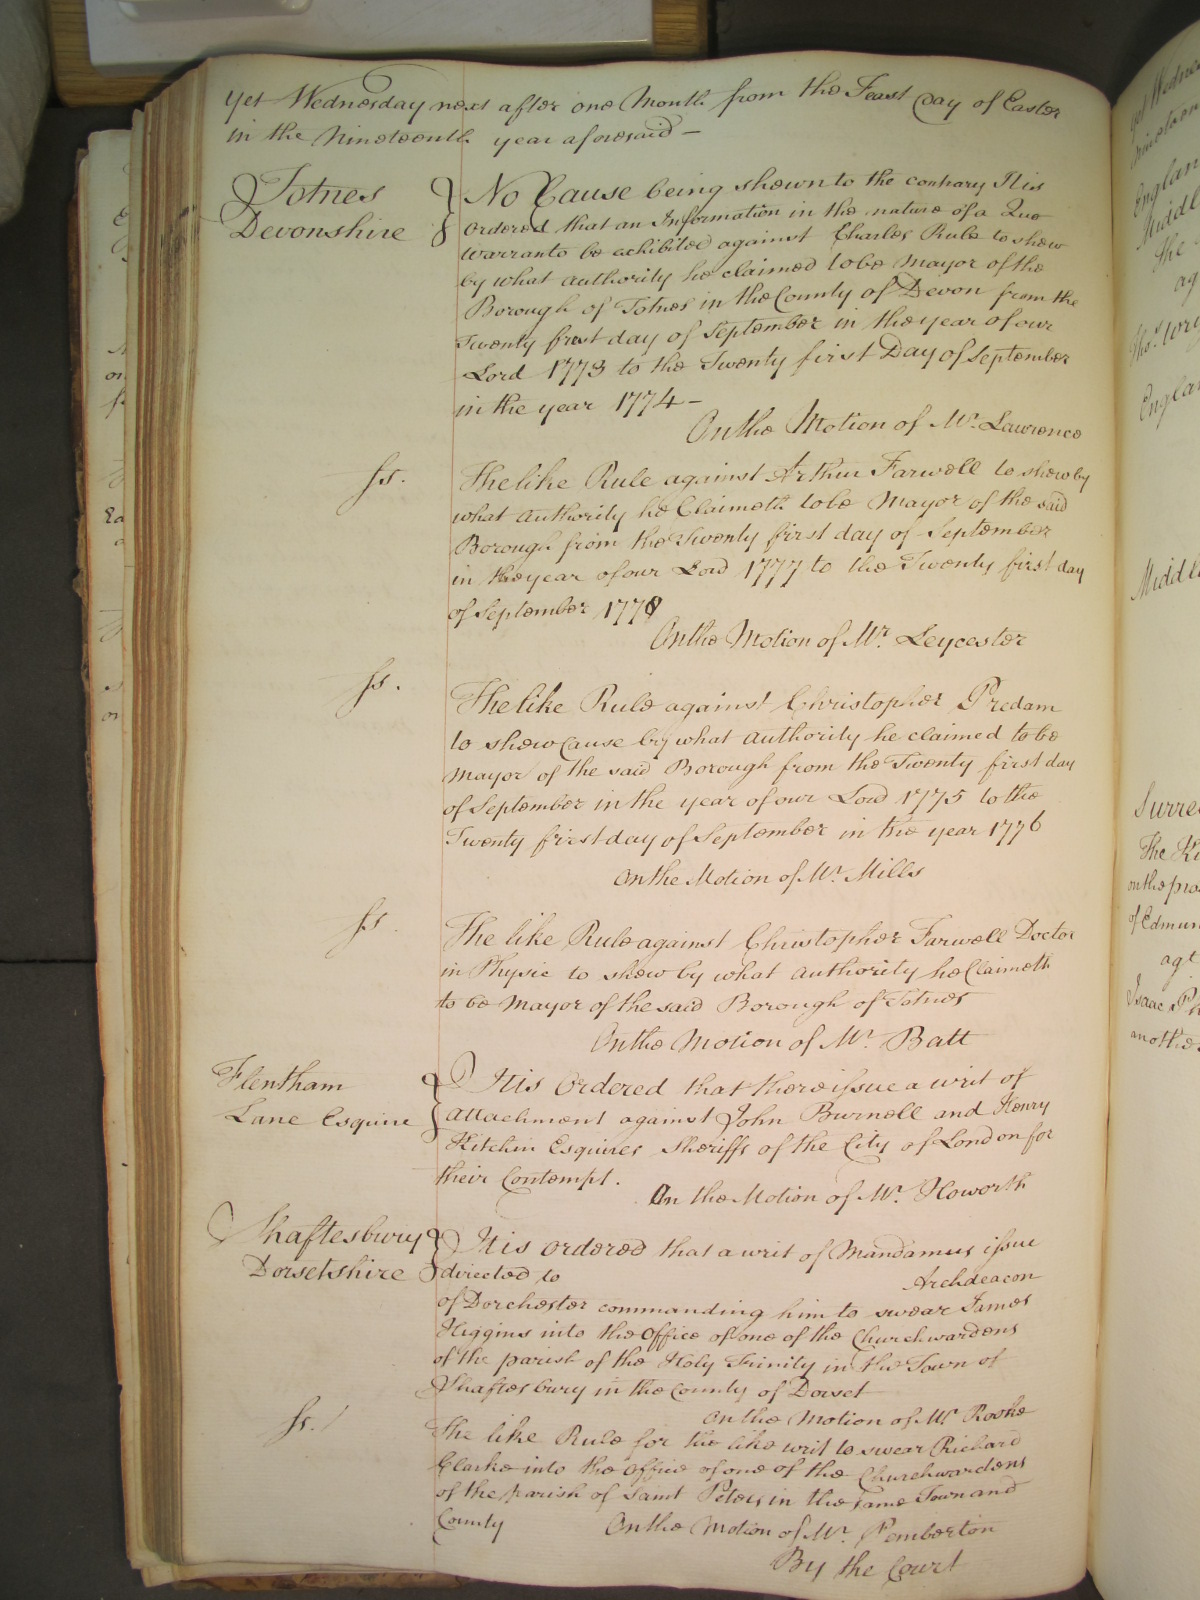 Yet Wednesday next after one Month from the Feast Day of Easter
in the Nineteenth year aforesaid –
Totnes
Devonshire
No Cause being shewn to the contrary It is
ordered that an Information in the nature of a Quo
warranto be exhibited against Charles Rule to shew
by what authority he claimed to be Mayor of the
Borough of Totnes in the County of Devon from the
Twenty first day of September in the year of our
Lord 1773 to the Twenty first Day of September
in the year 1774 –
On the Motion of Mr. Lawrence
ss.
The like Rule against Arthur Farwell to shew by
what authority he Claimeth to be Mayor of the said
Borough from the Twenty first day of September
in the year of our Lord 1777 to the Twenty first day
of September 1778
On the Motion of Mr. Leycester
ss.
The like Rule against Christopher Predam
to shew Cause by what authority he claimed to be
Mayor of the said Borough from the Twenty first day
of September in the year of our Lord 1775 to the
Twenty first day of September in the year 1776
On the Motion of Mr. Mills
ss.
The like Rule against Christopher Farwell Doctor
in Physic to shew by what authority he Claimeth
to be Mayor of the said Borough of Totnes
On the Motion of Mr. Batt
Flentham
Lane Esquire
It is Ordered that there issue a writ of
attachment against John Burnell and Henry
Kitchin Esquires Sheriffs of the City of London for
their Contempt.
On the Motion of Mr. Howorth
Shaftesbury
Dorsetshire
It is ordered that a writ of Mandamus issue
directed to Archdeacon
of Dorchester commanding him to swear James
Higgins into the Office of one of the Churchwardens
of the parish of the Holy Trinity in the Town of
Shaftesbury in the County of Dorset
On the Motion of Mr. Rooke
ss.
The like Rule for the like writ to swear Richard
Clarke into the Office of one of the Churchwardens
of the parish of Saint Peters in the same Town and
County
On the Motion of Mr. Pemberton
By the Court